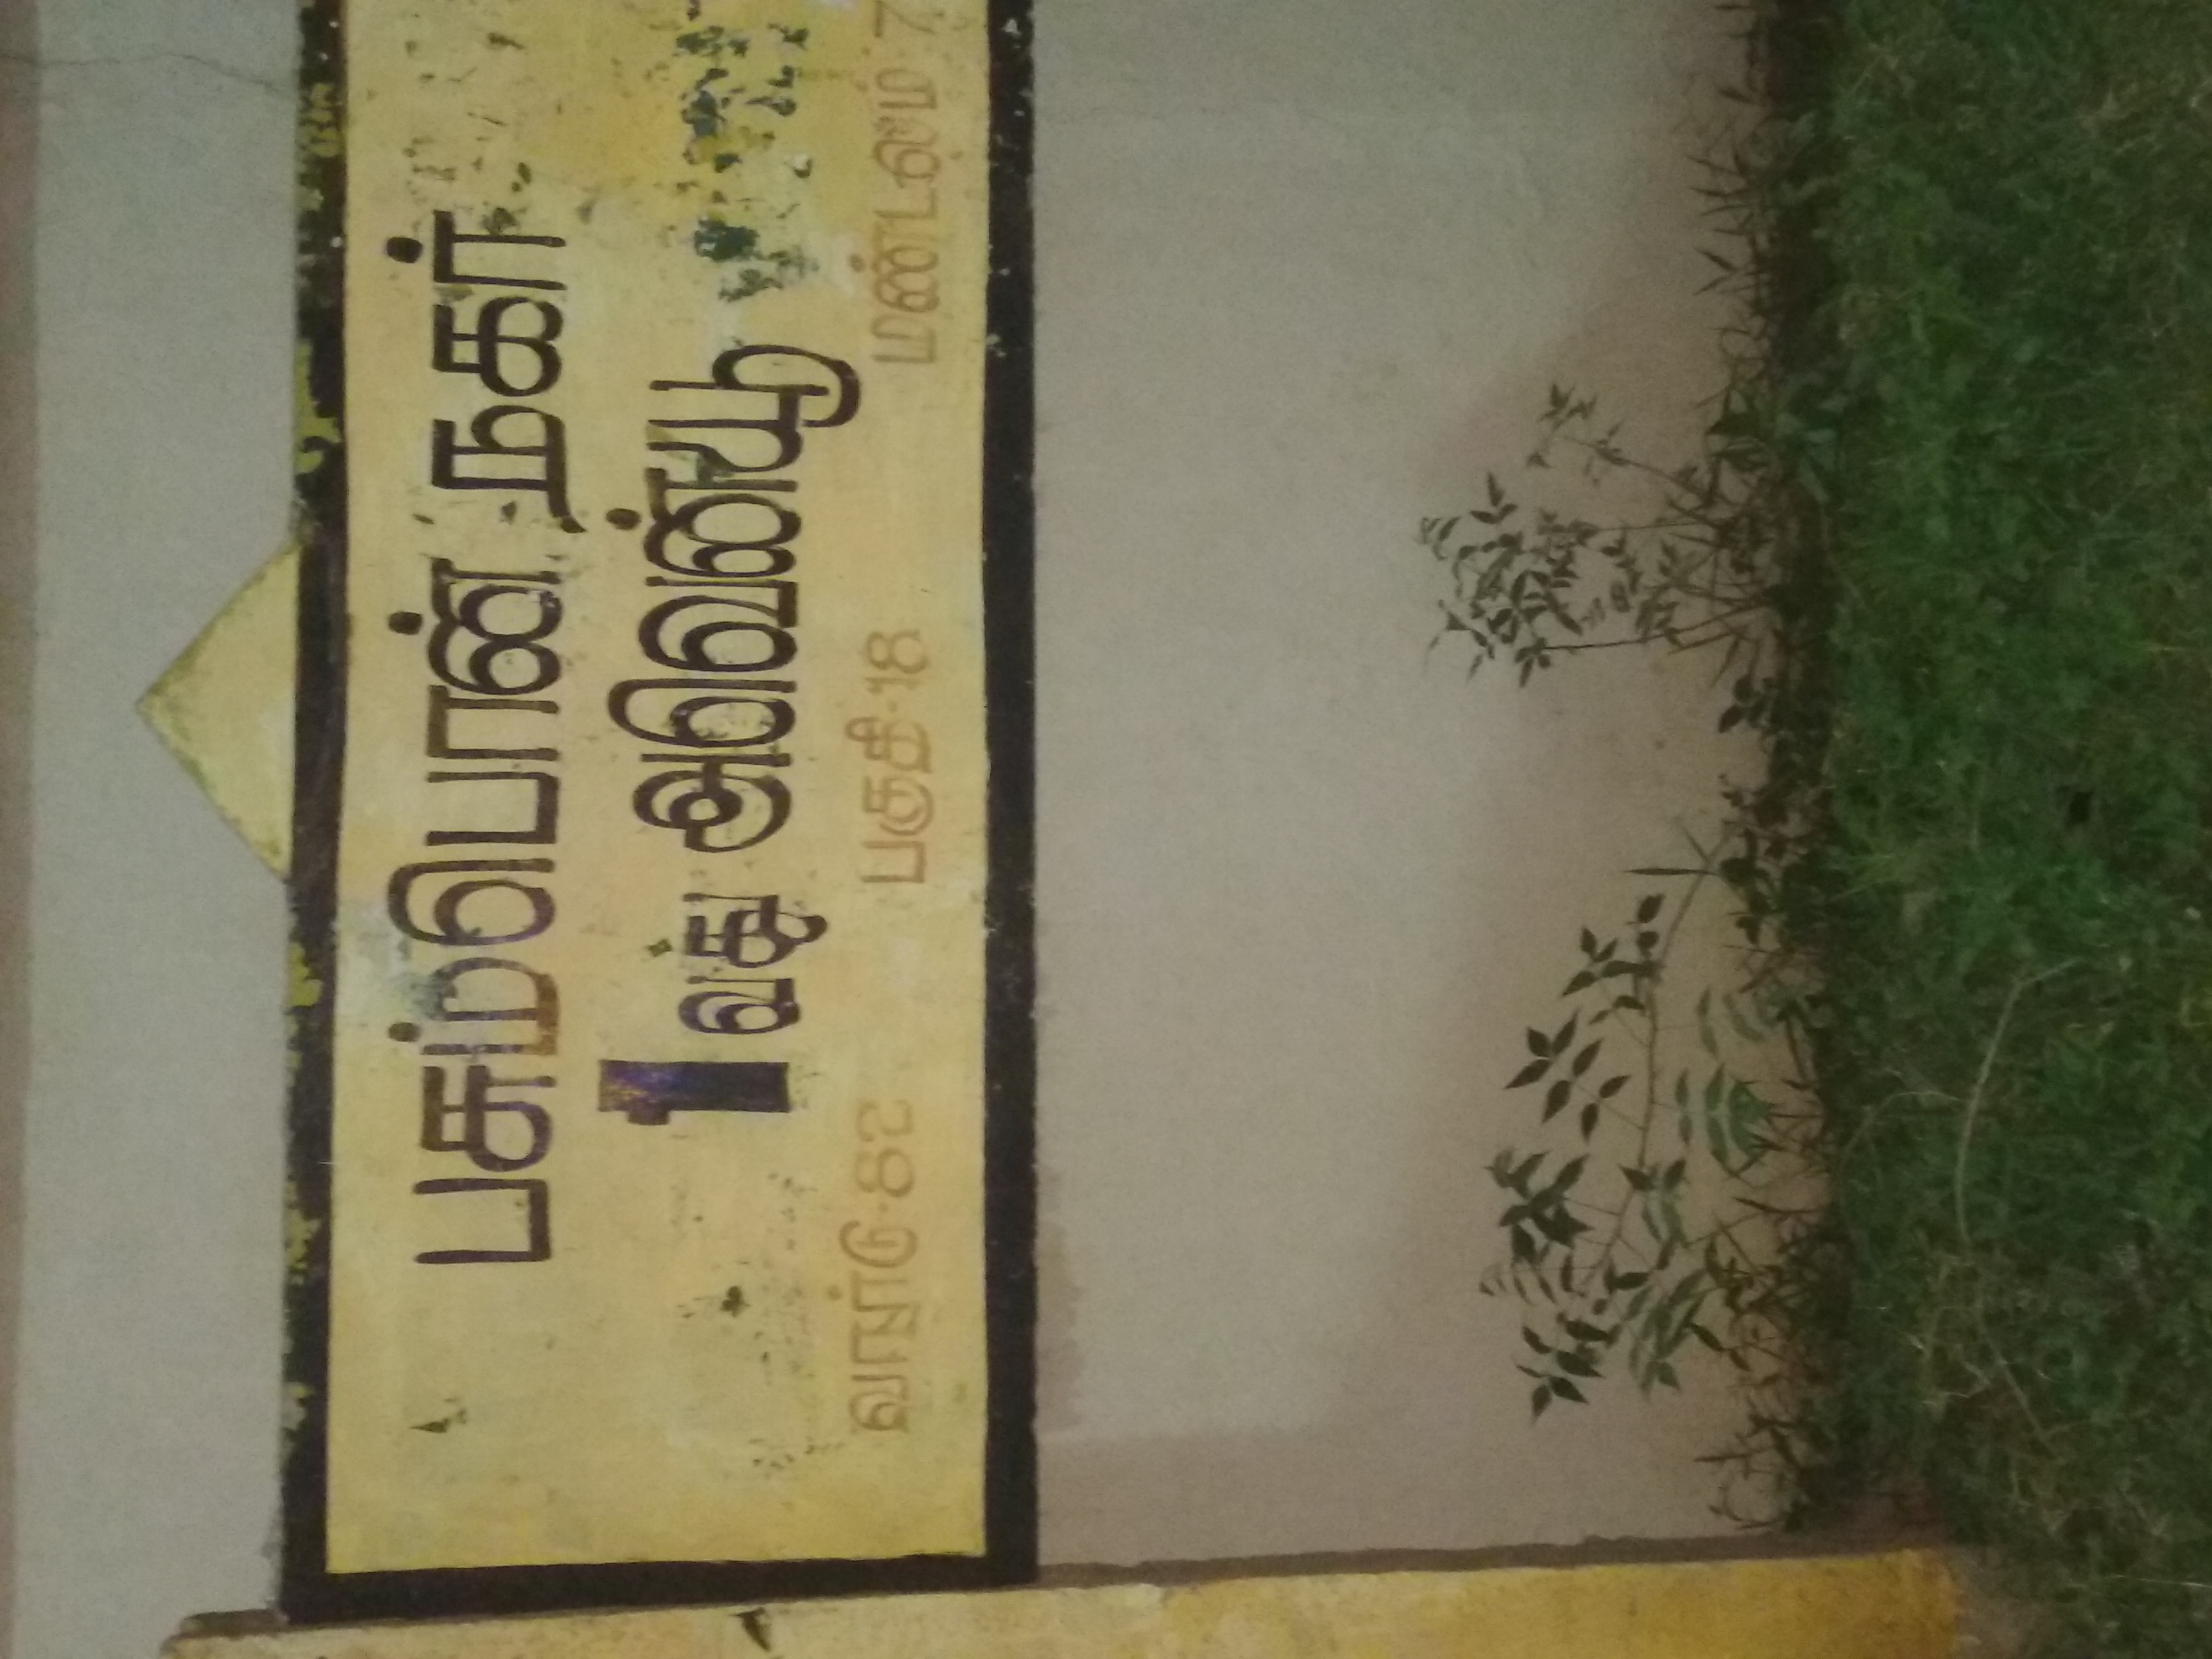 பசும்பொன் நகர்
1வது அவென்யூ
வார்டு-82 பகுதி-18 மண்டலம் 7